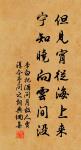 但見宵從海上來
寧知曉向雲間沒
李白把酒問月故人賈
淳令予問之詞典網春